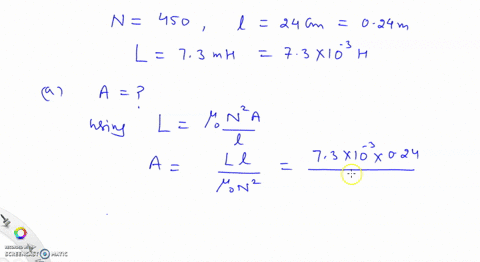 N = 450 , l = 24 Cm = 0.24 m
L = 7.3 mH = 7.3 × 10⁻³ H
(a) A = ?
using L = μ₀ N² A / l
A = L l / μ₀ N² = 7.3 × 10⁻³ × 0.24
RECORDED WITH
SCREENCAST MATIC